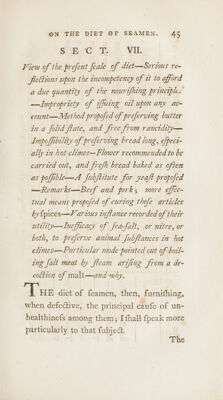 ON THE DIET OF SEAMEN. 45
SECT. VII.
View of the preſent ſcale of diet—Serious re-
flections upon the incompetency of it to afford
a due quantity of the nouriſhing principle.
—Impropriety of iſſuing oil upon any ac-
count—Method propoſed of preſerving butter
in a ſolid ſtate, and free from rancidity—
Impoſſibility of preſerving bread long, eſpeci-
ally in hot climes—Flower recommended to be
carried out, and freſh bread baked as often
as poſſible—A ſubſtitute for yeaſt propoſed
—Remarks—Beef and pork; more effec-
tual means propoſed of curing thoſe articles
by ſpices—Various inſtance recorded of their
utility—Inefficacy of ſea-ſalt, or nitre, or
both, to preſerve animal ſubſtances in hot
climes—Particular mode pointed out of boil-
ing ſalt meat by ſteam ariſing from a de-
coction of malt—and why.
THE diet of ſeamen, then, furniſhing,
when defective, the principal cauſe of un-
healthineſs among them; I ſhall ſpeak more
particularly to that ſubject.
The